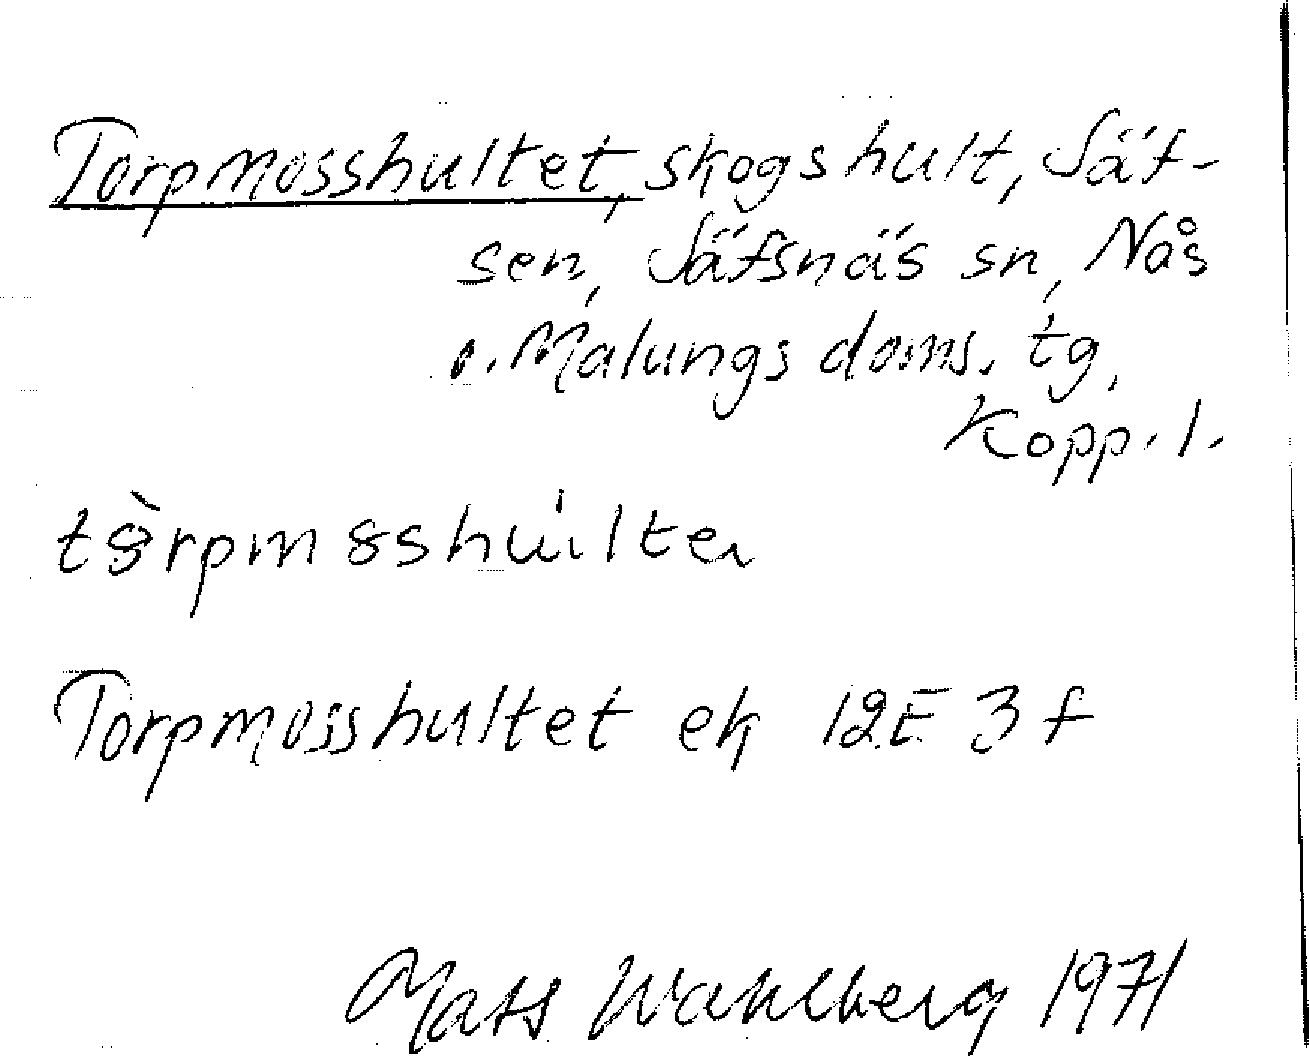 Torpmosshultet, skogshult, Säf-
sen, Säfsnäs sn, Nås
o. Malungs doms. tg,
Kopp. l.
Torpmosshultet ek 12E 3f
Mats Wahlberg 1971